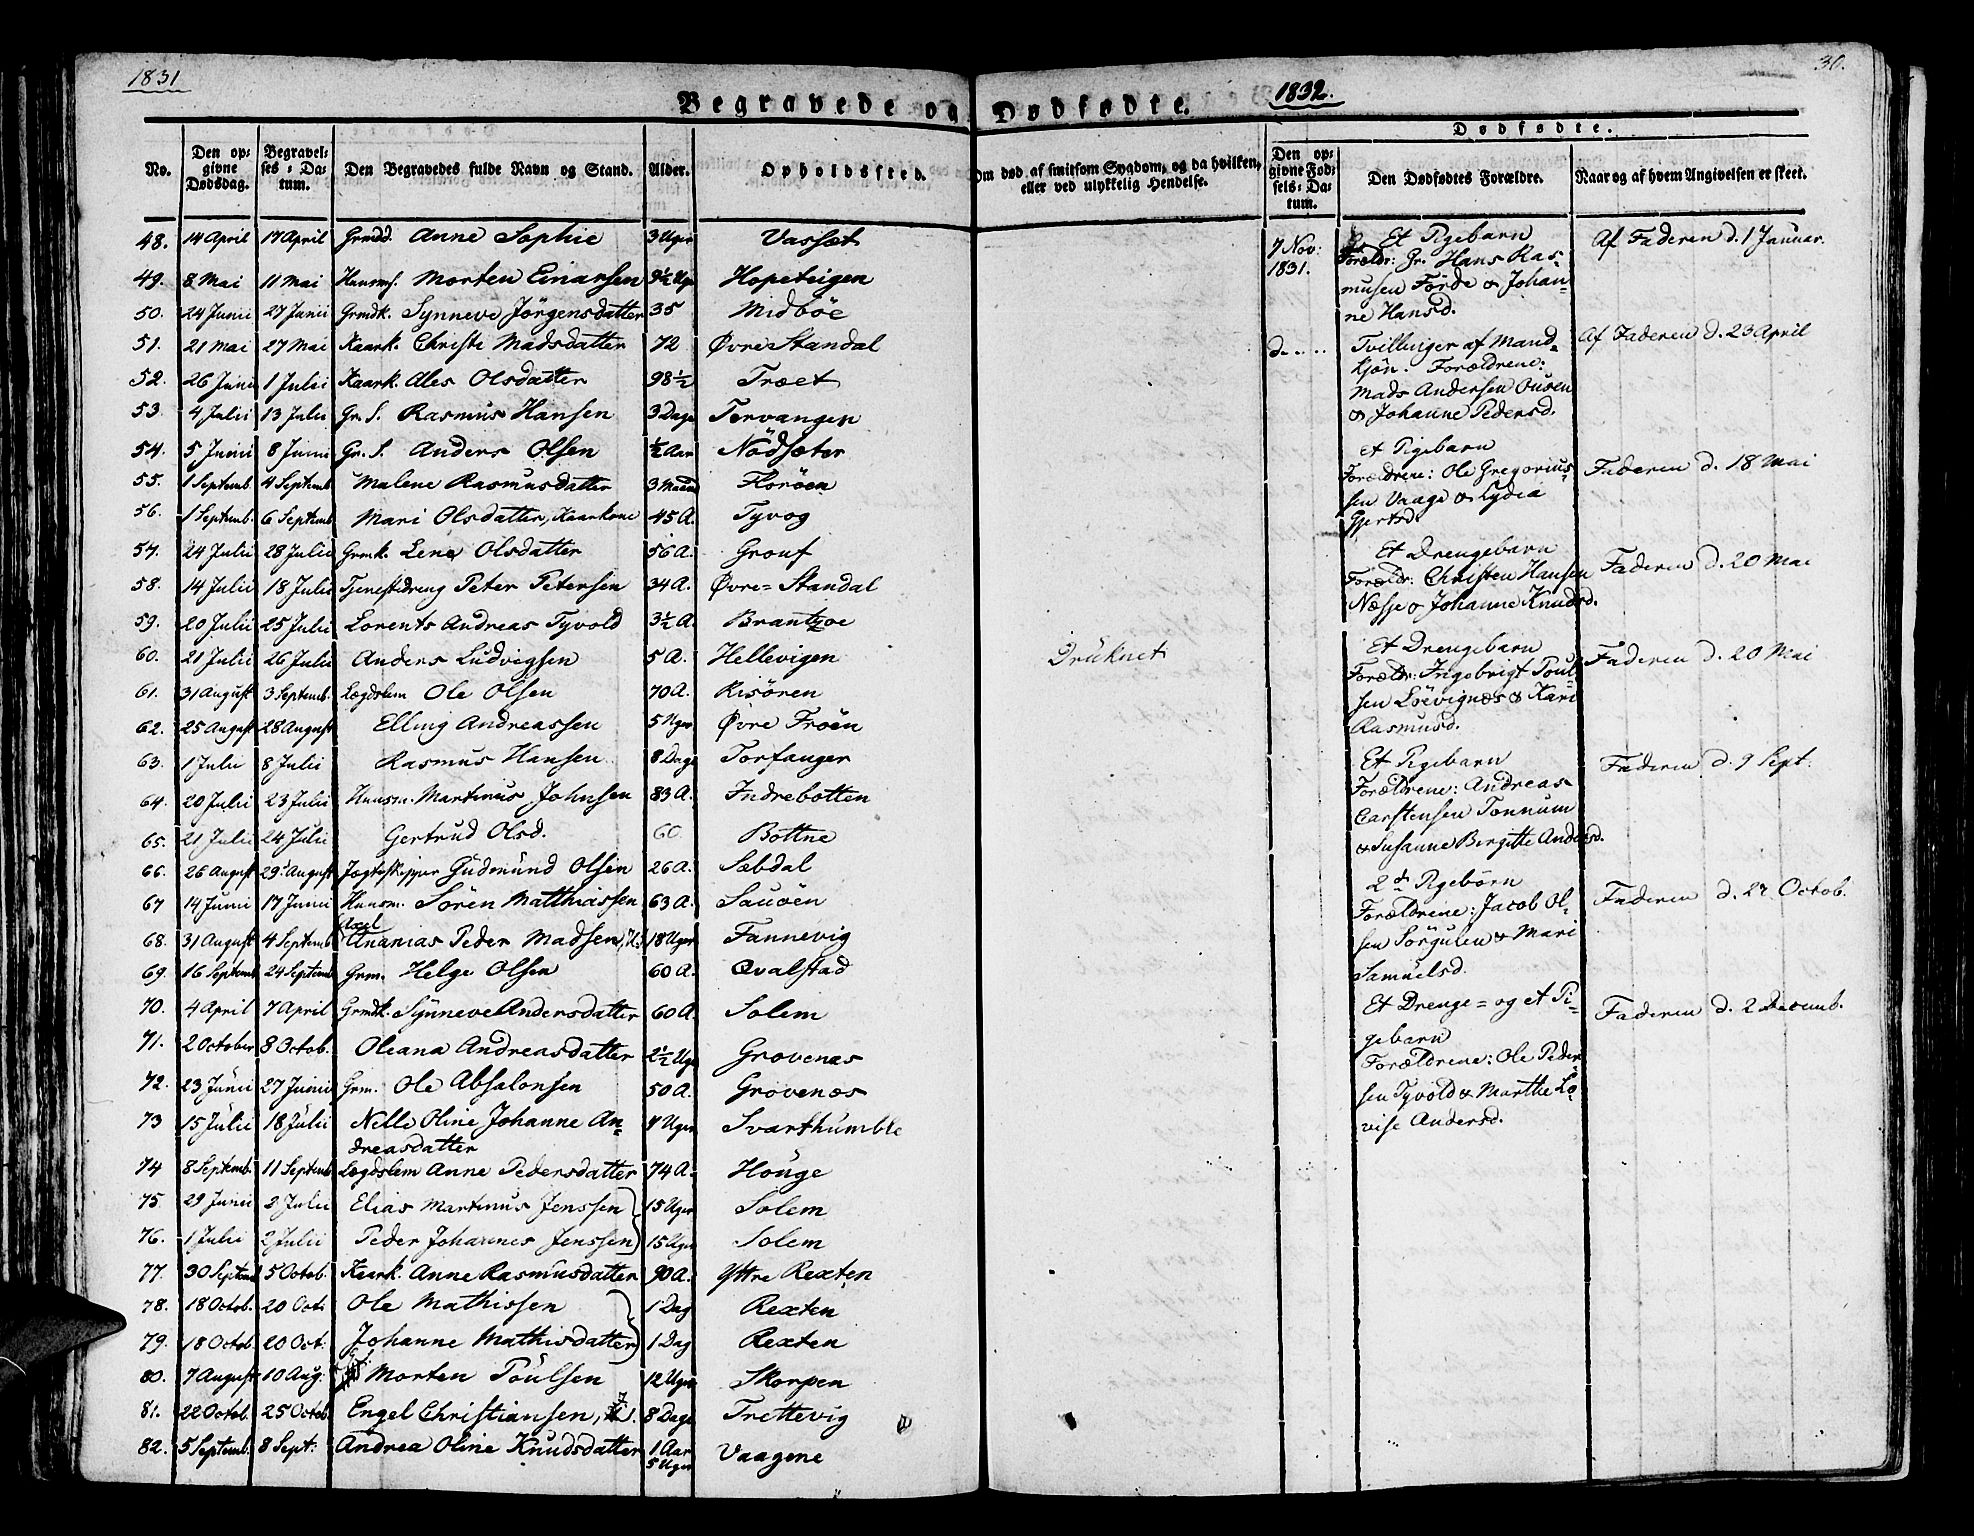 1831
1832.
30.
Begravede og Dødfødte.
Dødfødte.
No.
Den op-
givne
Dødsdag.
Begravel-
ses-Da-
tum.
Den Begravedes fulde Navn og Stand.
Alder.
Opholdssted.
Om død af smitsom Sygdom, og da hvilken,
eller ved ulykkelig Hendelse.
Den op-
givne Fød-
sels-Da-
tum.
Den Dødfødtes Forældre.
Naar og af hvem Angivelsen er skeet.
48. 14 April 17 April Grmdd. Anne Sophie 3 Uger Vasset
49. 8 Mai 11 Mai Huusms. Morten Einarsen 3½ Uge Hopeteigen
50. 24 Junii 27 Junii Grmdk. Synneve Jörgensdatter 35 Midböe
51. 21 Mai 27 Mai Kaark. Christi Madsdatter 72 Øvre Standal
52. 26 Juni 1 Julii Kaark. Ales Olsdatter 98½ Træet
53. 4 Julii 13 Julii Gr. S. Rasmus Hansen 3 Dage Tervangen
54. 5 Junii 8 Junii Gr. S. Anders Olsen ½ Aar Nödsæter
55. 1 Septemb 4 Septemb Malene Rasmusdatter 3 Maaned Floröen
56. 1 Septemb. 6 Septemb Mari Olsdatter, Kaarkone 45 A. Tyvog
57. 24 Julii 28 Julii Grmk. Lene Olsdatter 56 A. Grouf
58. 14 Julii 18 Julii Tjenestedreng Peter Petersen 34 A. Øvre=Standal
59. 20 Julii 25 Julii Lorents Andreas Tyvold 3½ A. Brantzoe
60. 21 Julii 26 Julii Anders Ludvigsen 5 A. Hellevigen Drüknet
61. 31 August 3 Septemb. Lægdslem Ole Olsen 70 A. Risören
62. 25 August 28 August Elling Andreassen 5 Uger Øvre Fröen
63. 1 Julii 8 Julii Rasmus Hansen 8 Dage Torfanger
64. 20 Julii 23 Julii Huusm. Martinus Johnsen 83 A. Indrebotten
65. 21 Julii 24 Julii Gertrud Olsd. 60 Bottne
66. 26 August 29 August Jægteskipper Gudmund Olsen 26 A. Sæbdal
67 14 Junii 17 Junii Huusm. Sören Matthiassen 63 A. Sauöen
Axel
68. 31 August 4 Septemb Ananias Peder Madsen, 18 Uger Fannevig
69. 16 Septemb 24 Septemb Grm. Helge Olsen 60 A. Qvalstad
70. 4 April 7 April Grmdk. Synneve Andersdatter 60 A Solem
71. 2 October 8 Octob. Oliana Andreasdatter 2½ Uge Grovenæs
72. 23 Junii 27 Junii Grm. Ole Absalonsen 50 A. Grovenæs
73 15 Julii 18 Julii Nelle Oline Johanne An= 4 Uger Svarthumble
dreasdatter
74 8 Septemb. 11 Septemb Lægdslem Anne Pedersdatter 74 A. Houge
75 29 Junii 2 Julii Elias Martinus Jenssen 15 Uger Solem
76. 1 Julii 2 Julii Peder Johannes Jenssen 15 Uger Solem
77. 30 Septemb 5 Octob. Kaark. Anne Rasmusdatter 90 A. Yttre Rexten
78. 18 Octob. 20 Oct. Ole Mathissen 1 Dag Rexten
79. 18 Octob. 20 Oct: Johanne Mathisdatter 1 Dag Rexten
80. 7 August 10 Aug. Morten Poulsen 12 Uger Skorpen
81. 22 Octob. 25 Octob. Engel Christiansen, 8 Dage Trettevig
82. 5 Septemb. 8 Sept: Andrea Oline Knudsdatter 1 Aar Vaagene
5 Uger
7 Nov:
1831.
Et Pigebarn
Forældr: Gr. Hans Ras=
musen Förde & Johan=
ne Hansd.
Af Faderen d. 1 Januar.
d. . . .
Tvillinger af Mand=
kjön. Forældrene:
Mads Andersen Ousen
& Johanne Pedersd.
Af Faderen d. 23 April
Et Pigebarn
Forældrene: Ole Gregorius=
sen Vaage & Lydia
Gjertsd.
Faderen d. 18 Mai
Et Drengebarn
Forældr: Christen Hansen
Næsje & Johanne Knudsd.
Faderen d. 20 Mai
Et Drengebarn
Forældr: Ingebrigt Poul=
sen Löevignæs & Kari
Rasmusd.
Faderen d. 20 Mai
Et Pigebarn
Forældrene: Andreas
Carstensen Tonnum
& Susanne Birgitte Andersd.
Faderen d. 9 Sept.
2de Pigebörn
Forældrene: Jacob Ol=
sen Sörgulen & Mari
Samuelsd.
Faderen d. 27 Octob.
Et Drenge= og et Pi=
gebarn
Forældrene: Ole Peder
sen Tyvold & Marthe Lo=
vise Andersd.
Faderen d. 2 Decemb.